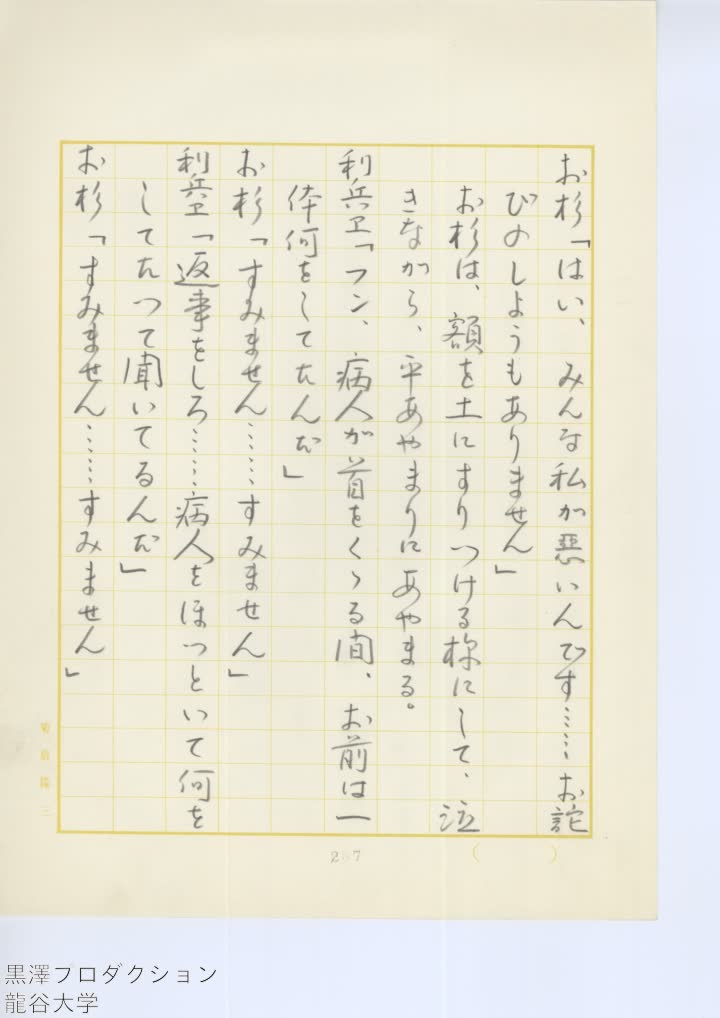 お杉「はい、みんな私が悪いんです……お詫
びのしようもありません」
お杉は、額を土にすりつける様にして、泣
きながら、平あやまりにあやまる。
利兵ヱ「フン、病人が首をくゝる間、お前は一
体何をしてたんだ」
お杉「すみません……すみません」
利兵ヱ「返事をしろ……病人をほっといて何を
してたって聞いてるんだ」
お杉「すみません……すみません」
287
黒澤プロダクション
龍谷大学